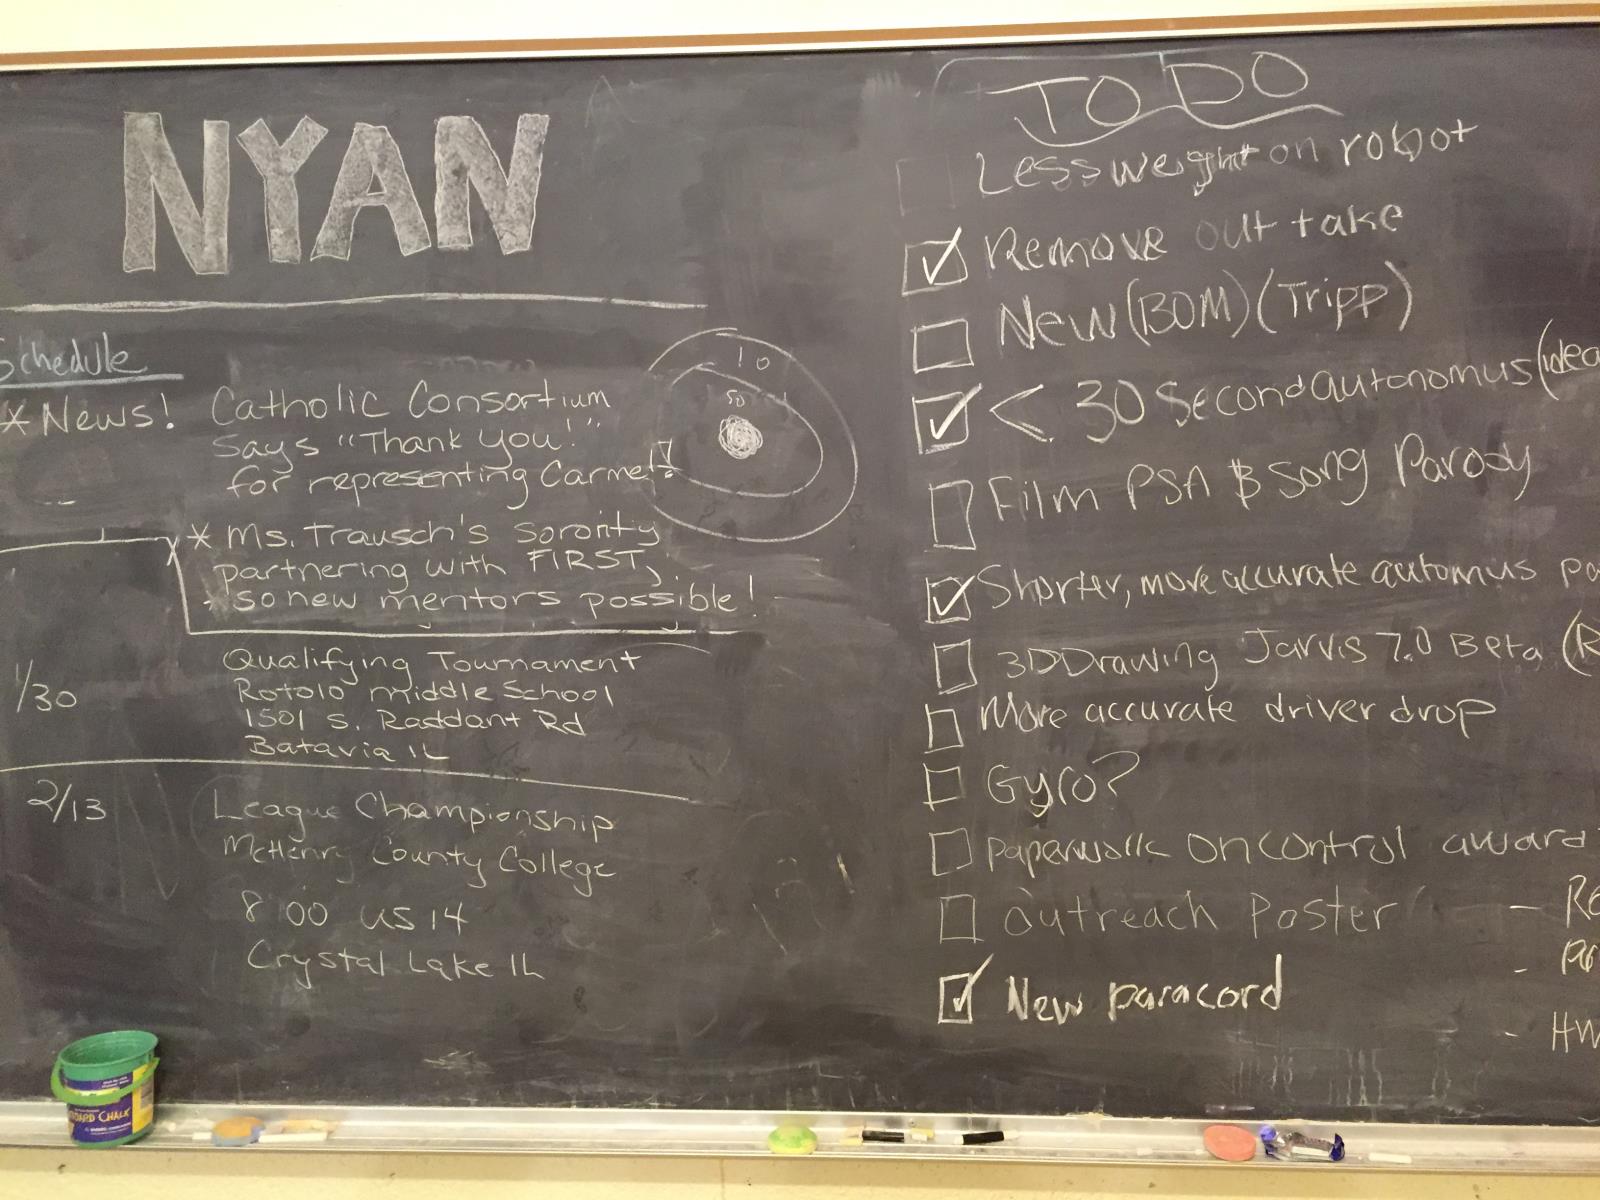 NYAN
Schedule
* News! Catholic Consortium
Says "Thank you!"
for representing Carmel!
* Ms. Trausch's Sorority
partnering with FIRST,
so new mentors possible!
1/30 Qualifying Tournament
Rotolo middle School
1501 S. Raddant Rd
Batavia IL
2/13 League Championship
McHenry County College
8900 US 14
Crystal Lake IL
10
50
TO DO
Less weight on robot
Remove out take
New (BOM) (Tripp)
< 30 Second autonomus (idea
Film PSA & Song Parody
Shorter, more accurate automus pa
3D Drawing Jarvis 7.0 Beta (R
More accurate driver drop
Gyro?
Paperwork on control award
Outreach Poster
- Re
- Po
- HW
New paracord
CHALK